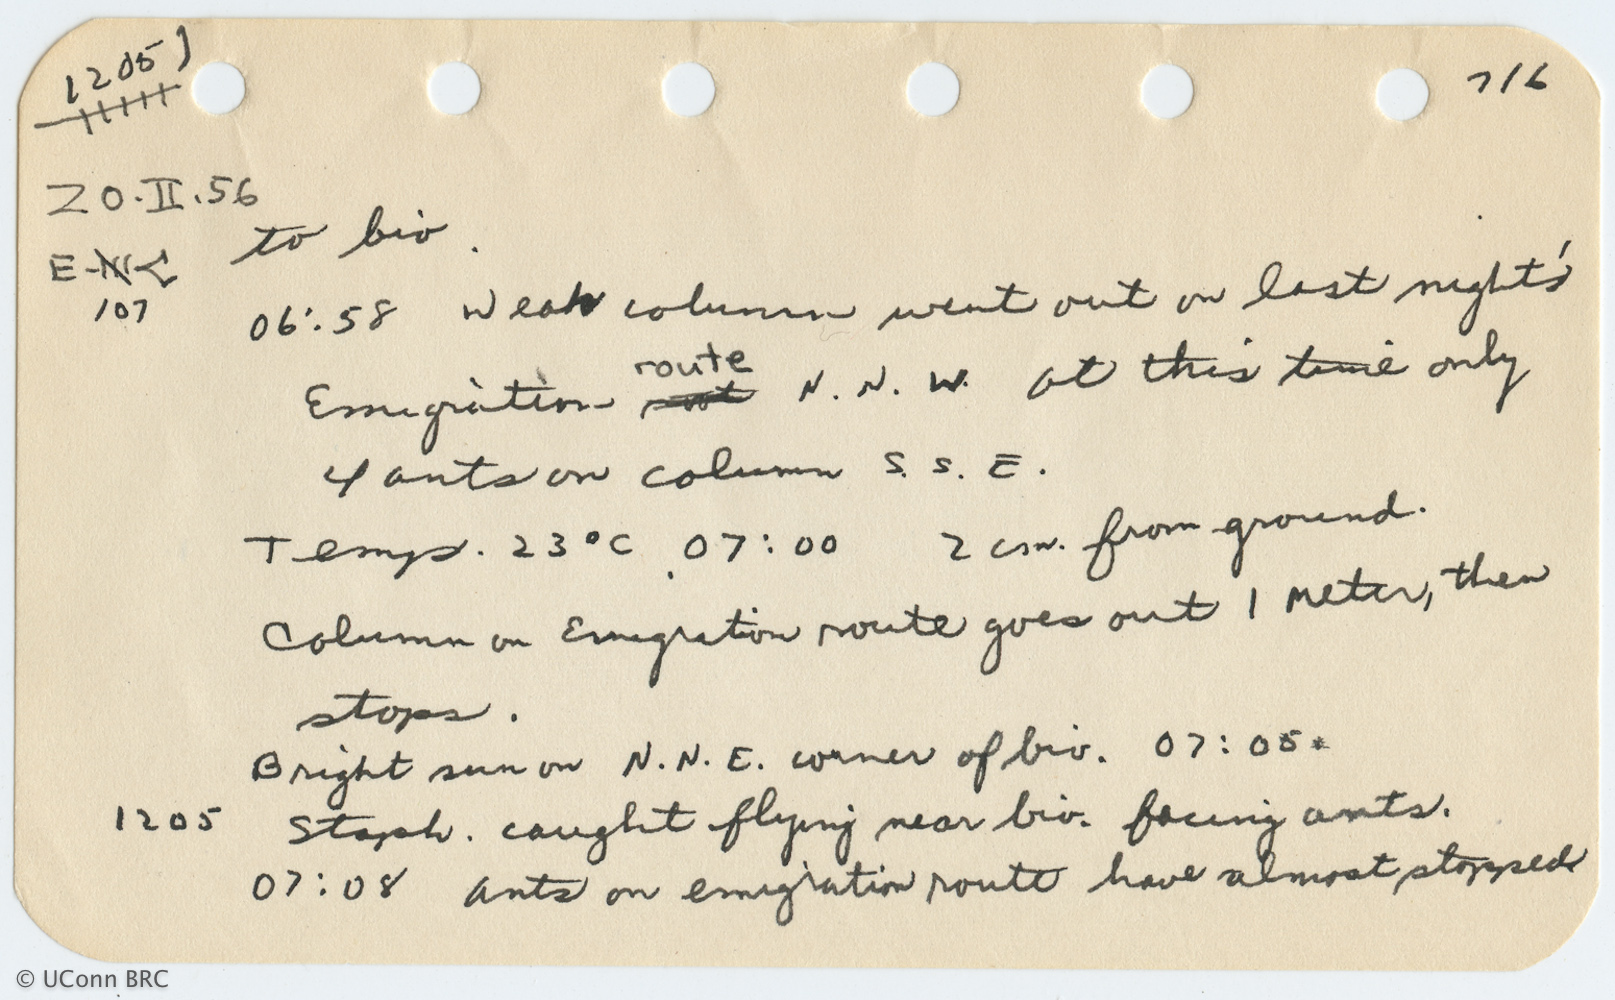 1205)
716
20.II.56
to biv.
E-N<
107
06:58 Weak column went out on last night's
Emigration route N.N.W. at this time only
4 ants on column S.S.E.
Temp. 23°C. 07:00 2 cm. from ground.
Column on Emigration route goes out 1 meter, then
stops.
Bright sun on N.N.E. corner of biv. 07:05.
1205 Staph. caught flying near biv. facing ants.
07:08 ants on emigration route have almost stopped
© UConn BRC